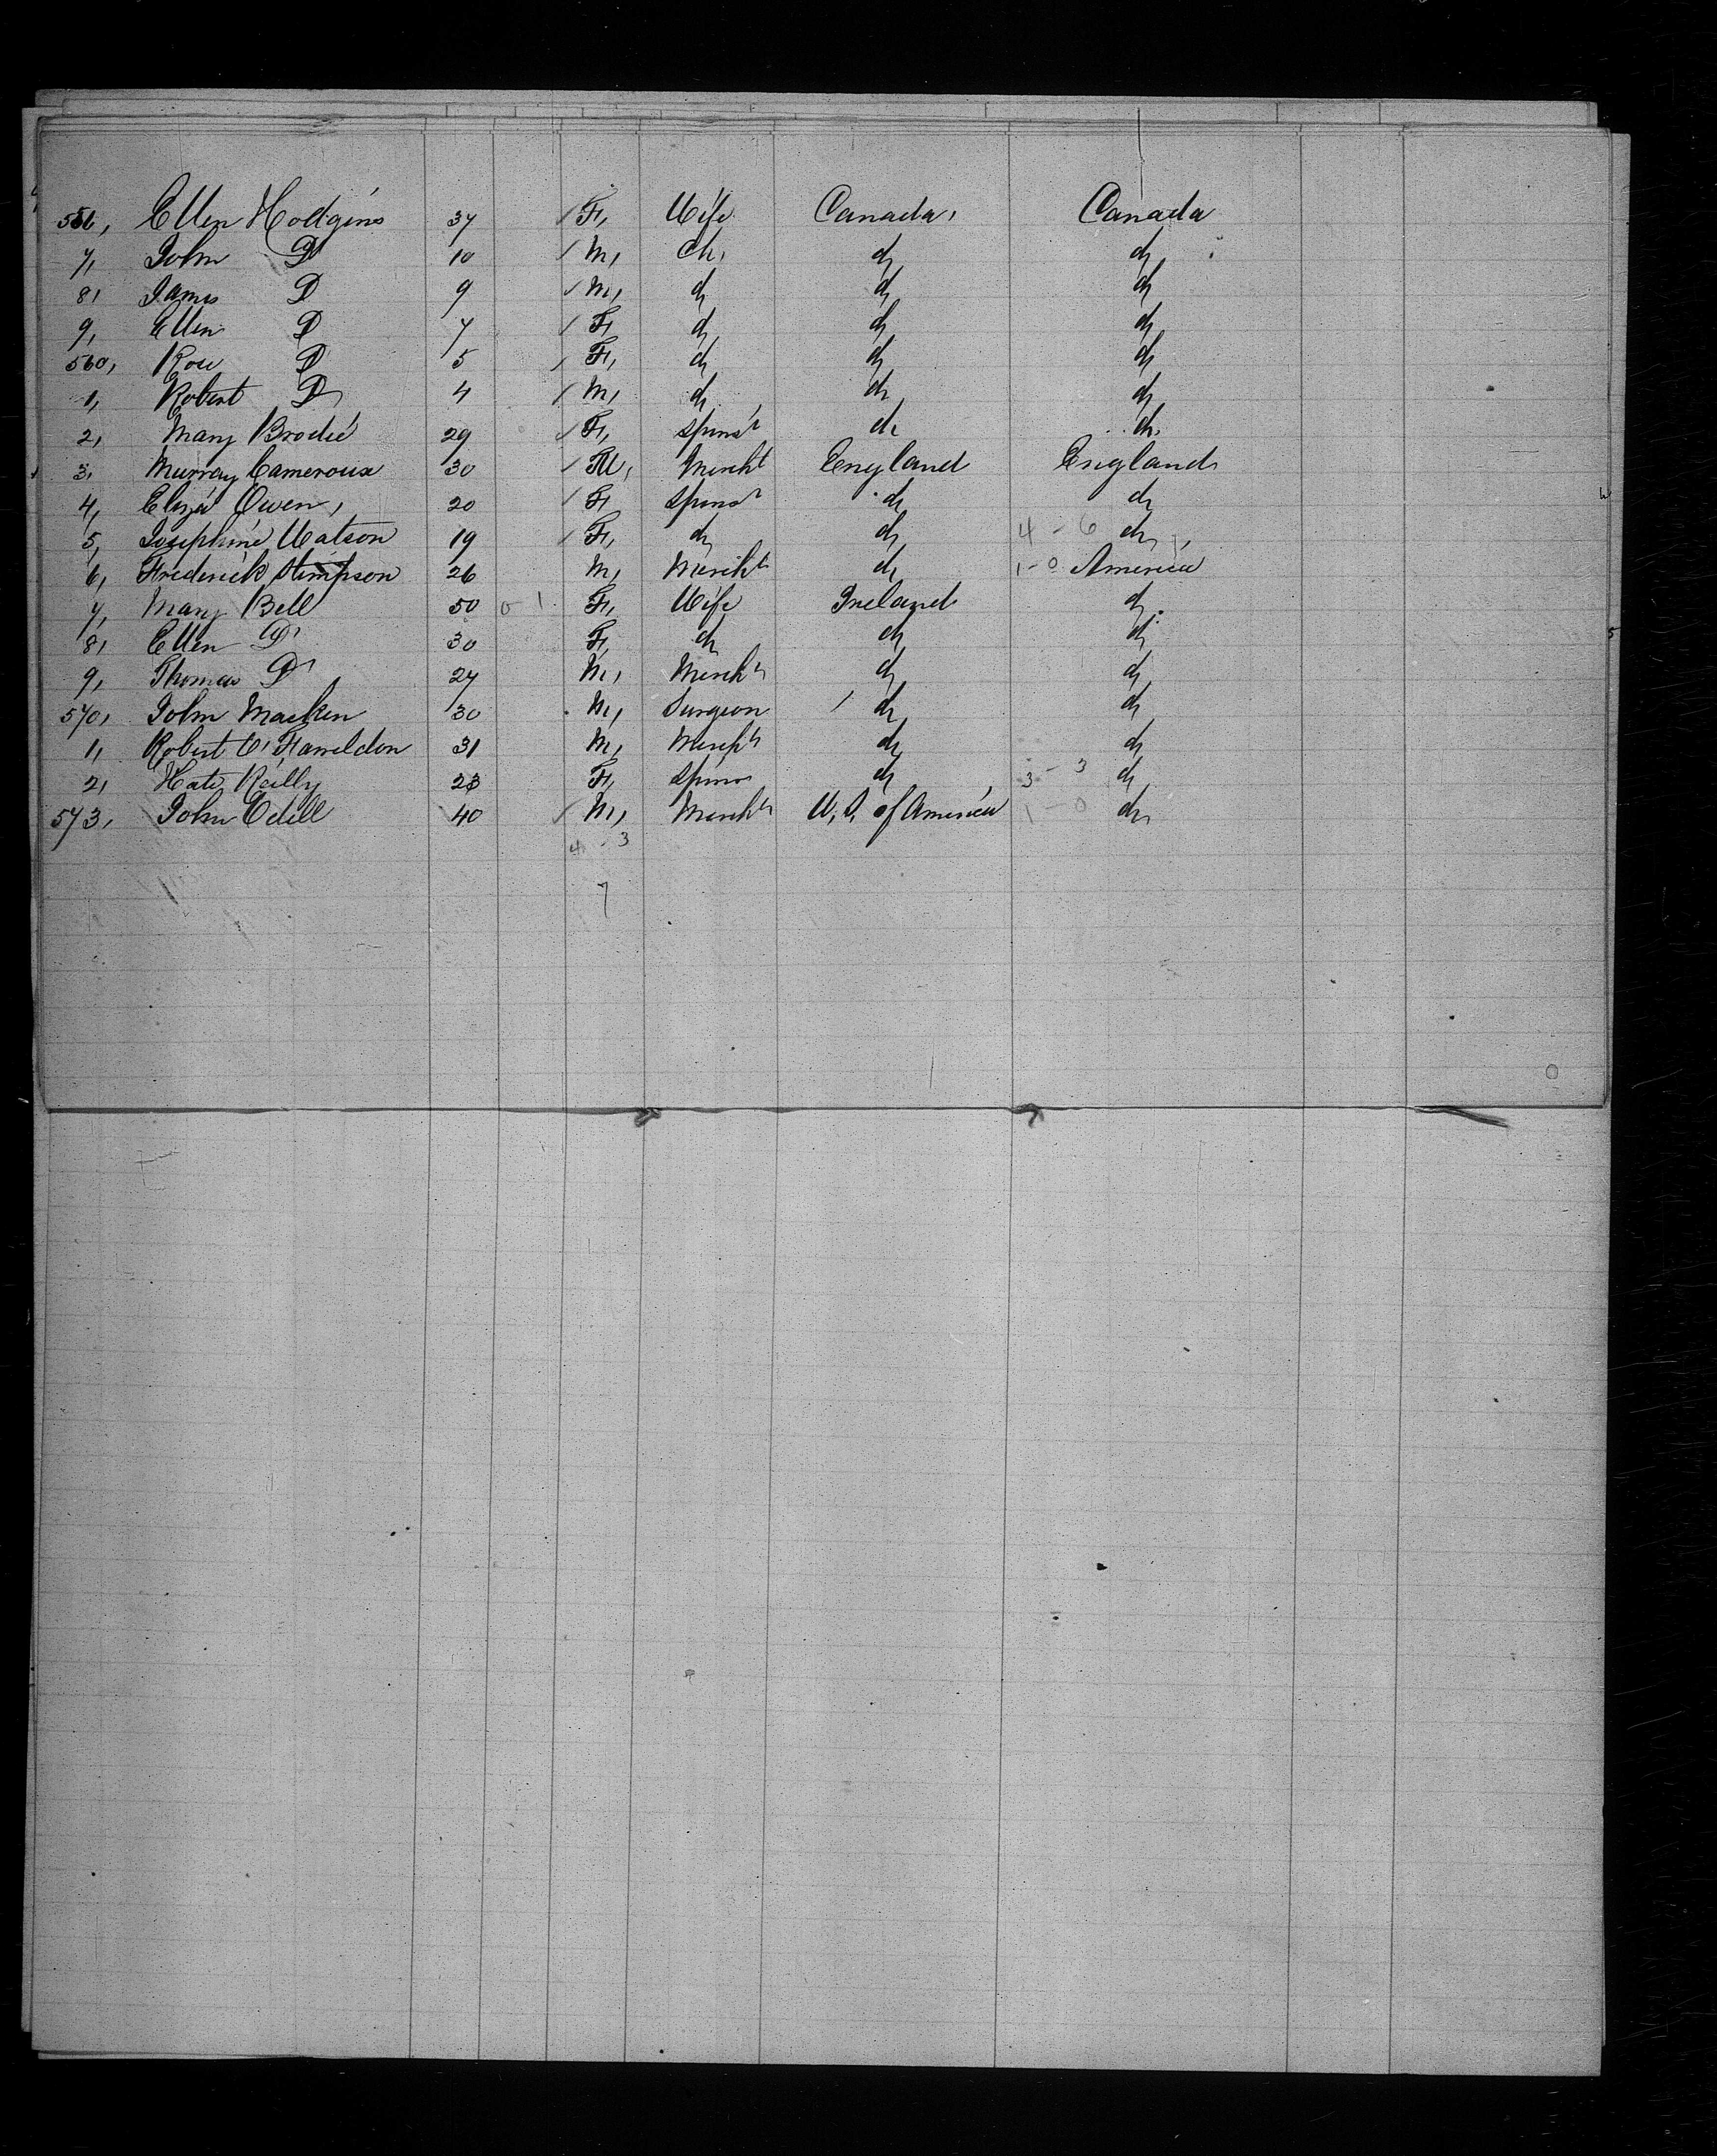 556, Ellen Hodgins 37 / F, Wife Canada, Canada
7, John D 10 / M, Ch, do do
8, James D 9 / M, do do do
9, Ellen D 7 / F, do do do
560, Rose D 5 / F, do do do
1, Robert D 4 / M, do do do
2, Mary Brodie 29 / F, Spinsr do do
3, Murray Cameroux 30 / M, Mercht England England
4, Eliza Owen, 20 / F, Spinsr do do
5, Josephine Watson 19 / F, do do 4 - 6 do
6, Frederick Stimpson 26 M, Mercht do 1 - 0 America
7, Mary Bell 50 0 - 1 F, Wife Ireland do
8, Ellen D 30 F, do do do
9, Thomas D 27 M, Mercht do do
570, John Macken 30 M, Surgeon / do do
1, Robert 31 M, Mercht do do
2, Kate Reilly 23 F, Spinsr do 3 - 3 do
573, John Odell 40 / M, Mercht U, S, of America 1 - 0 do
4 - 3
7